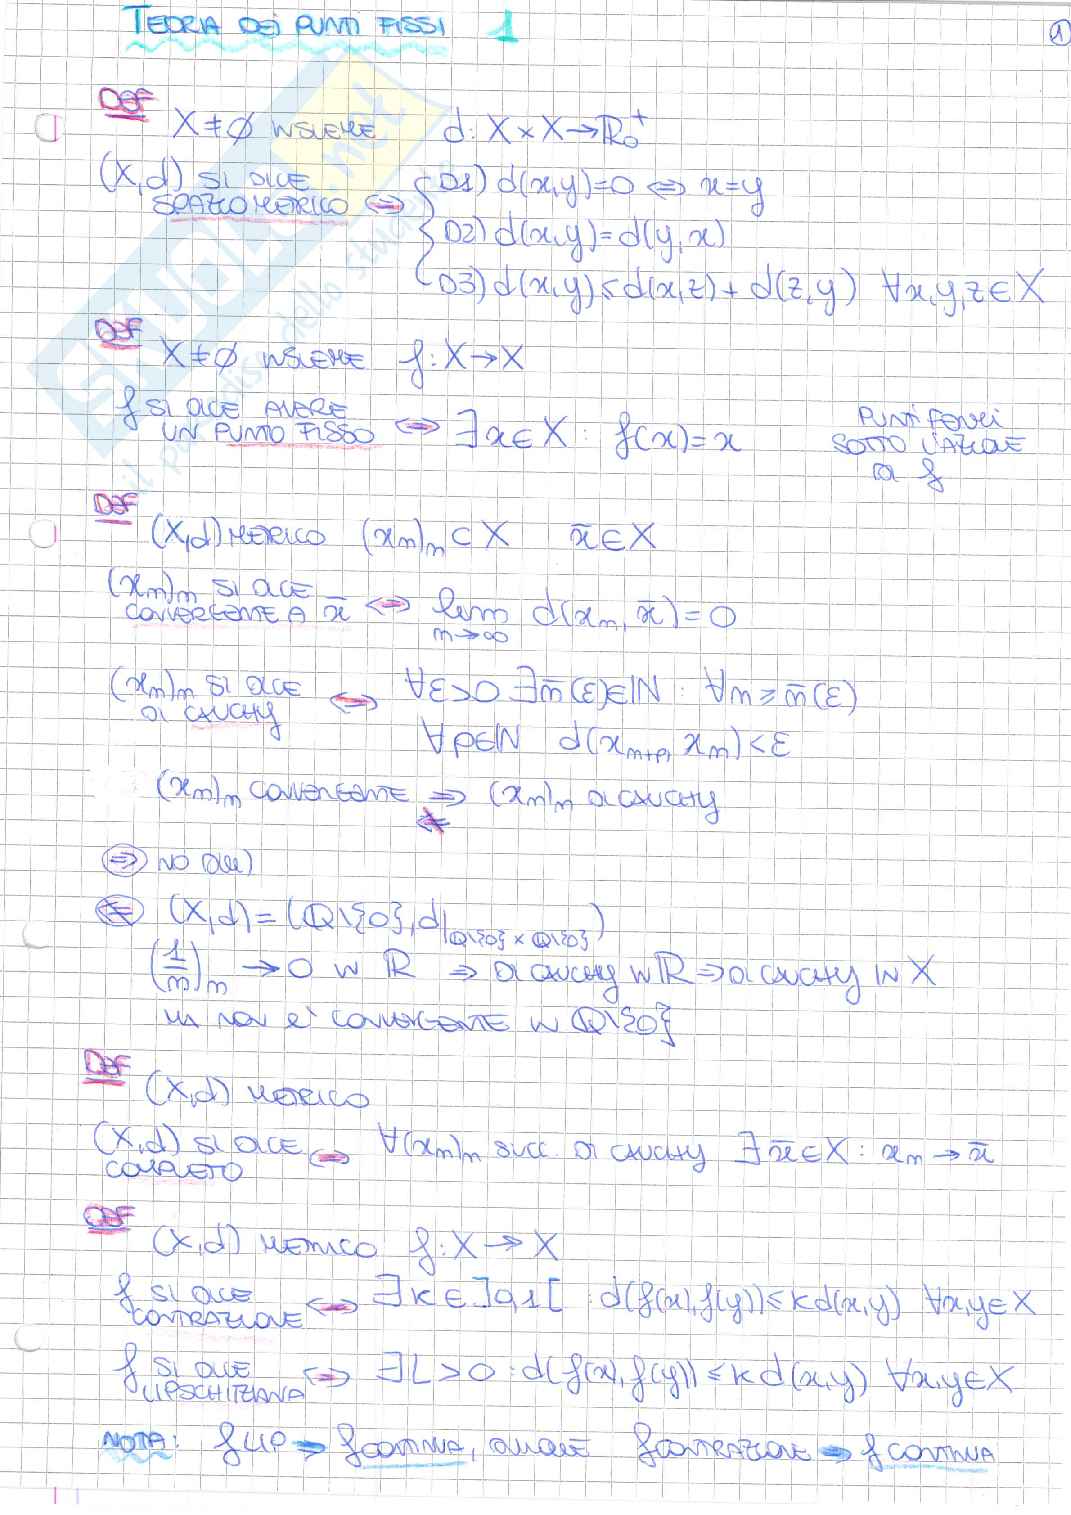 TEORIA DEI PUNTI FISSI 1
1
DEF
X ≠ ∅ INSIEME d: X × X → ℝ₀⁺
(X,d) SI DICE SPAZIO METRICO ⇔ { D1) d(x,y)=0 ⇔ x=y
D2) d(x,y)=d(y,x)
D3) d(x,y) ≤ d(x,z) + d(z,y) ∀x,y,z ∈ X
DEF
X ≠ ∅ INSIEME f: X → X
f SI DICE AVERE UN PUNTO FISSO ⇔ ∃ x ∈ X : f(x) = x
PUNTI FERMI
SOTTO L'AZIONE
DI f
DEF
(X,d) METRICO (xₙ)ₙ ⊂ X x̄ ∈ X
(xₙ)ₙ SI DICE CONVERGENTE A x̄ ⇔ lim n→∞ d(xₙ, x̄) = 0
(xₙ)ₙ SI DICE DI CAUCHY ⇔ ∀ε>0 ∃ n̄(ε)∈ℕ : ∀n ≥ n̄(ε)
∀p∈ℕ d(xₙ₊ₚ, xₙ) < ε
(xₙ)ₙ CONVERGENTE ⇒ (xₙ)ₙ DI CAUCHY
⇍
⇒ NO DIM)
⇍ (X,d) = (ℚ\{0}, d|ℚ\{0} × ℚ\{0})
(1/n)ₙ → 0 IN ℝ ⇒ DI CAUCHY IN ℝ ⇒ DI CAUCHY IN X
MA NON E' CONVERGENTE IN ℚ\{0}
DEF
(X,d) METRICO
(X,d) SI DICE COMPLETO ⇔ ∀(xₙ)ₙ SUCC. DI CAUCHY ∃ x̄ ∈ X : xₙ → x̄
DEF
(X,d) METRICO f: X → X
f SI DICE CONTRAZIONE ⇔ ∃ K ∈ ]0,1[ : d(f(x),f(y)) ≤ K d(x,y) ∀x,y ∈ X
f SI DICE LIPSCHITZIANA ⇔ ∃ L > 0 : d(f(x),f(y)) ≤ K d(x,y) ∀x,y ∈ X
NOTA: f LIP ⇒ f CONTINUA, QUINDI f CONTRAZIONE ⇒ f CONTINUA